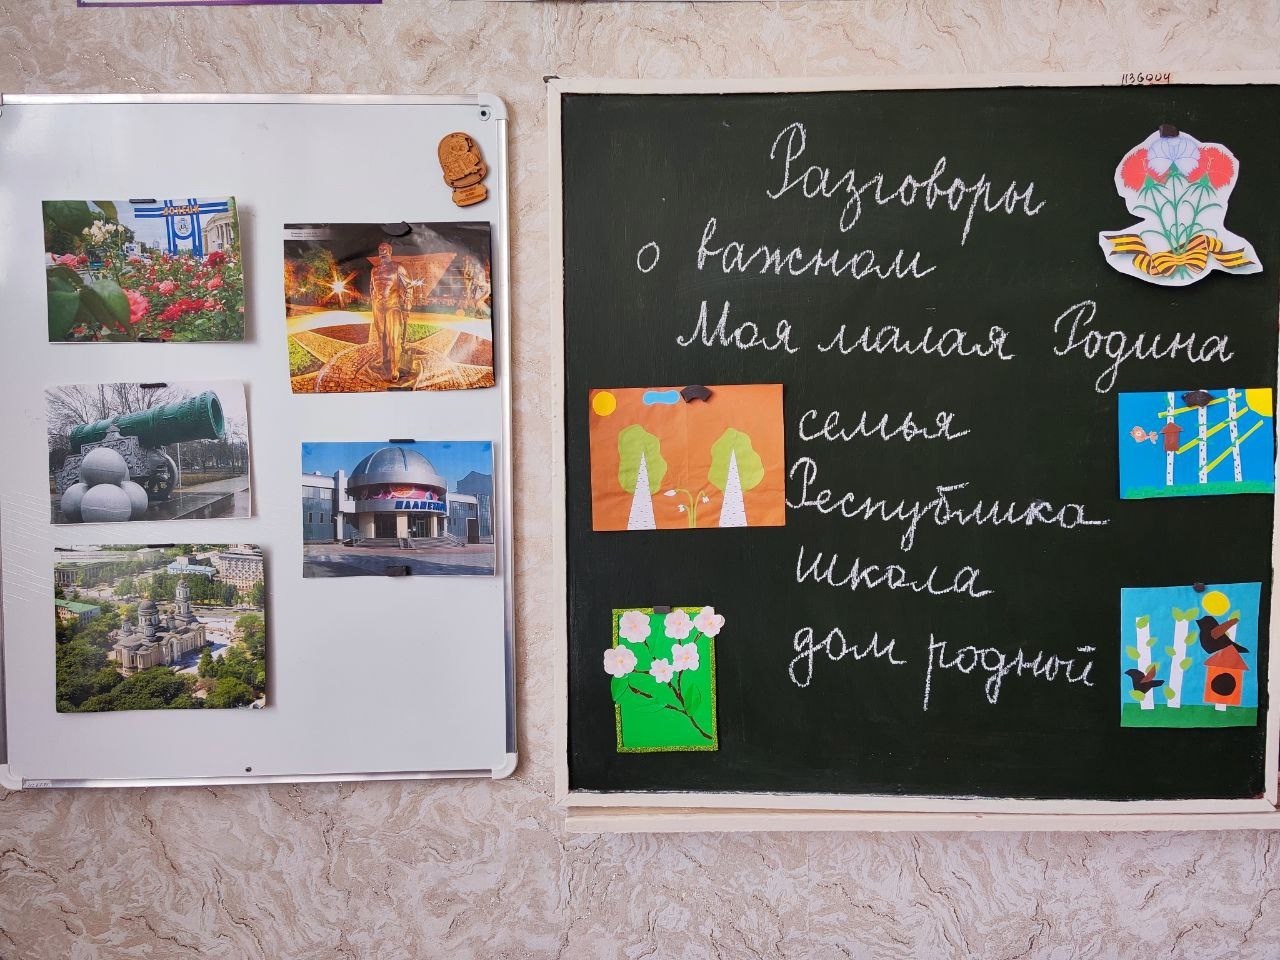 ДОНЕЦК
ПЛАНЕТАРИЙ
1136004
Разговоры
о важном
Моя малая Родина
семья
Республика
школа
дом родной